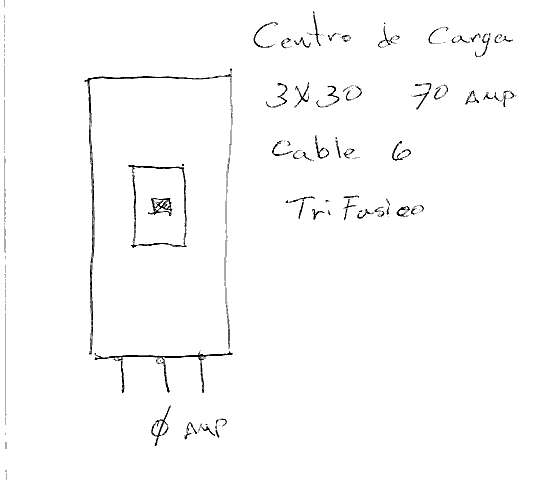 Centro de Carga
3X30 70 AMP
Cable 6
TriFasico
Ø AMP